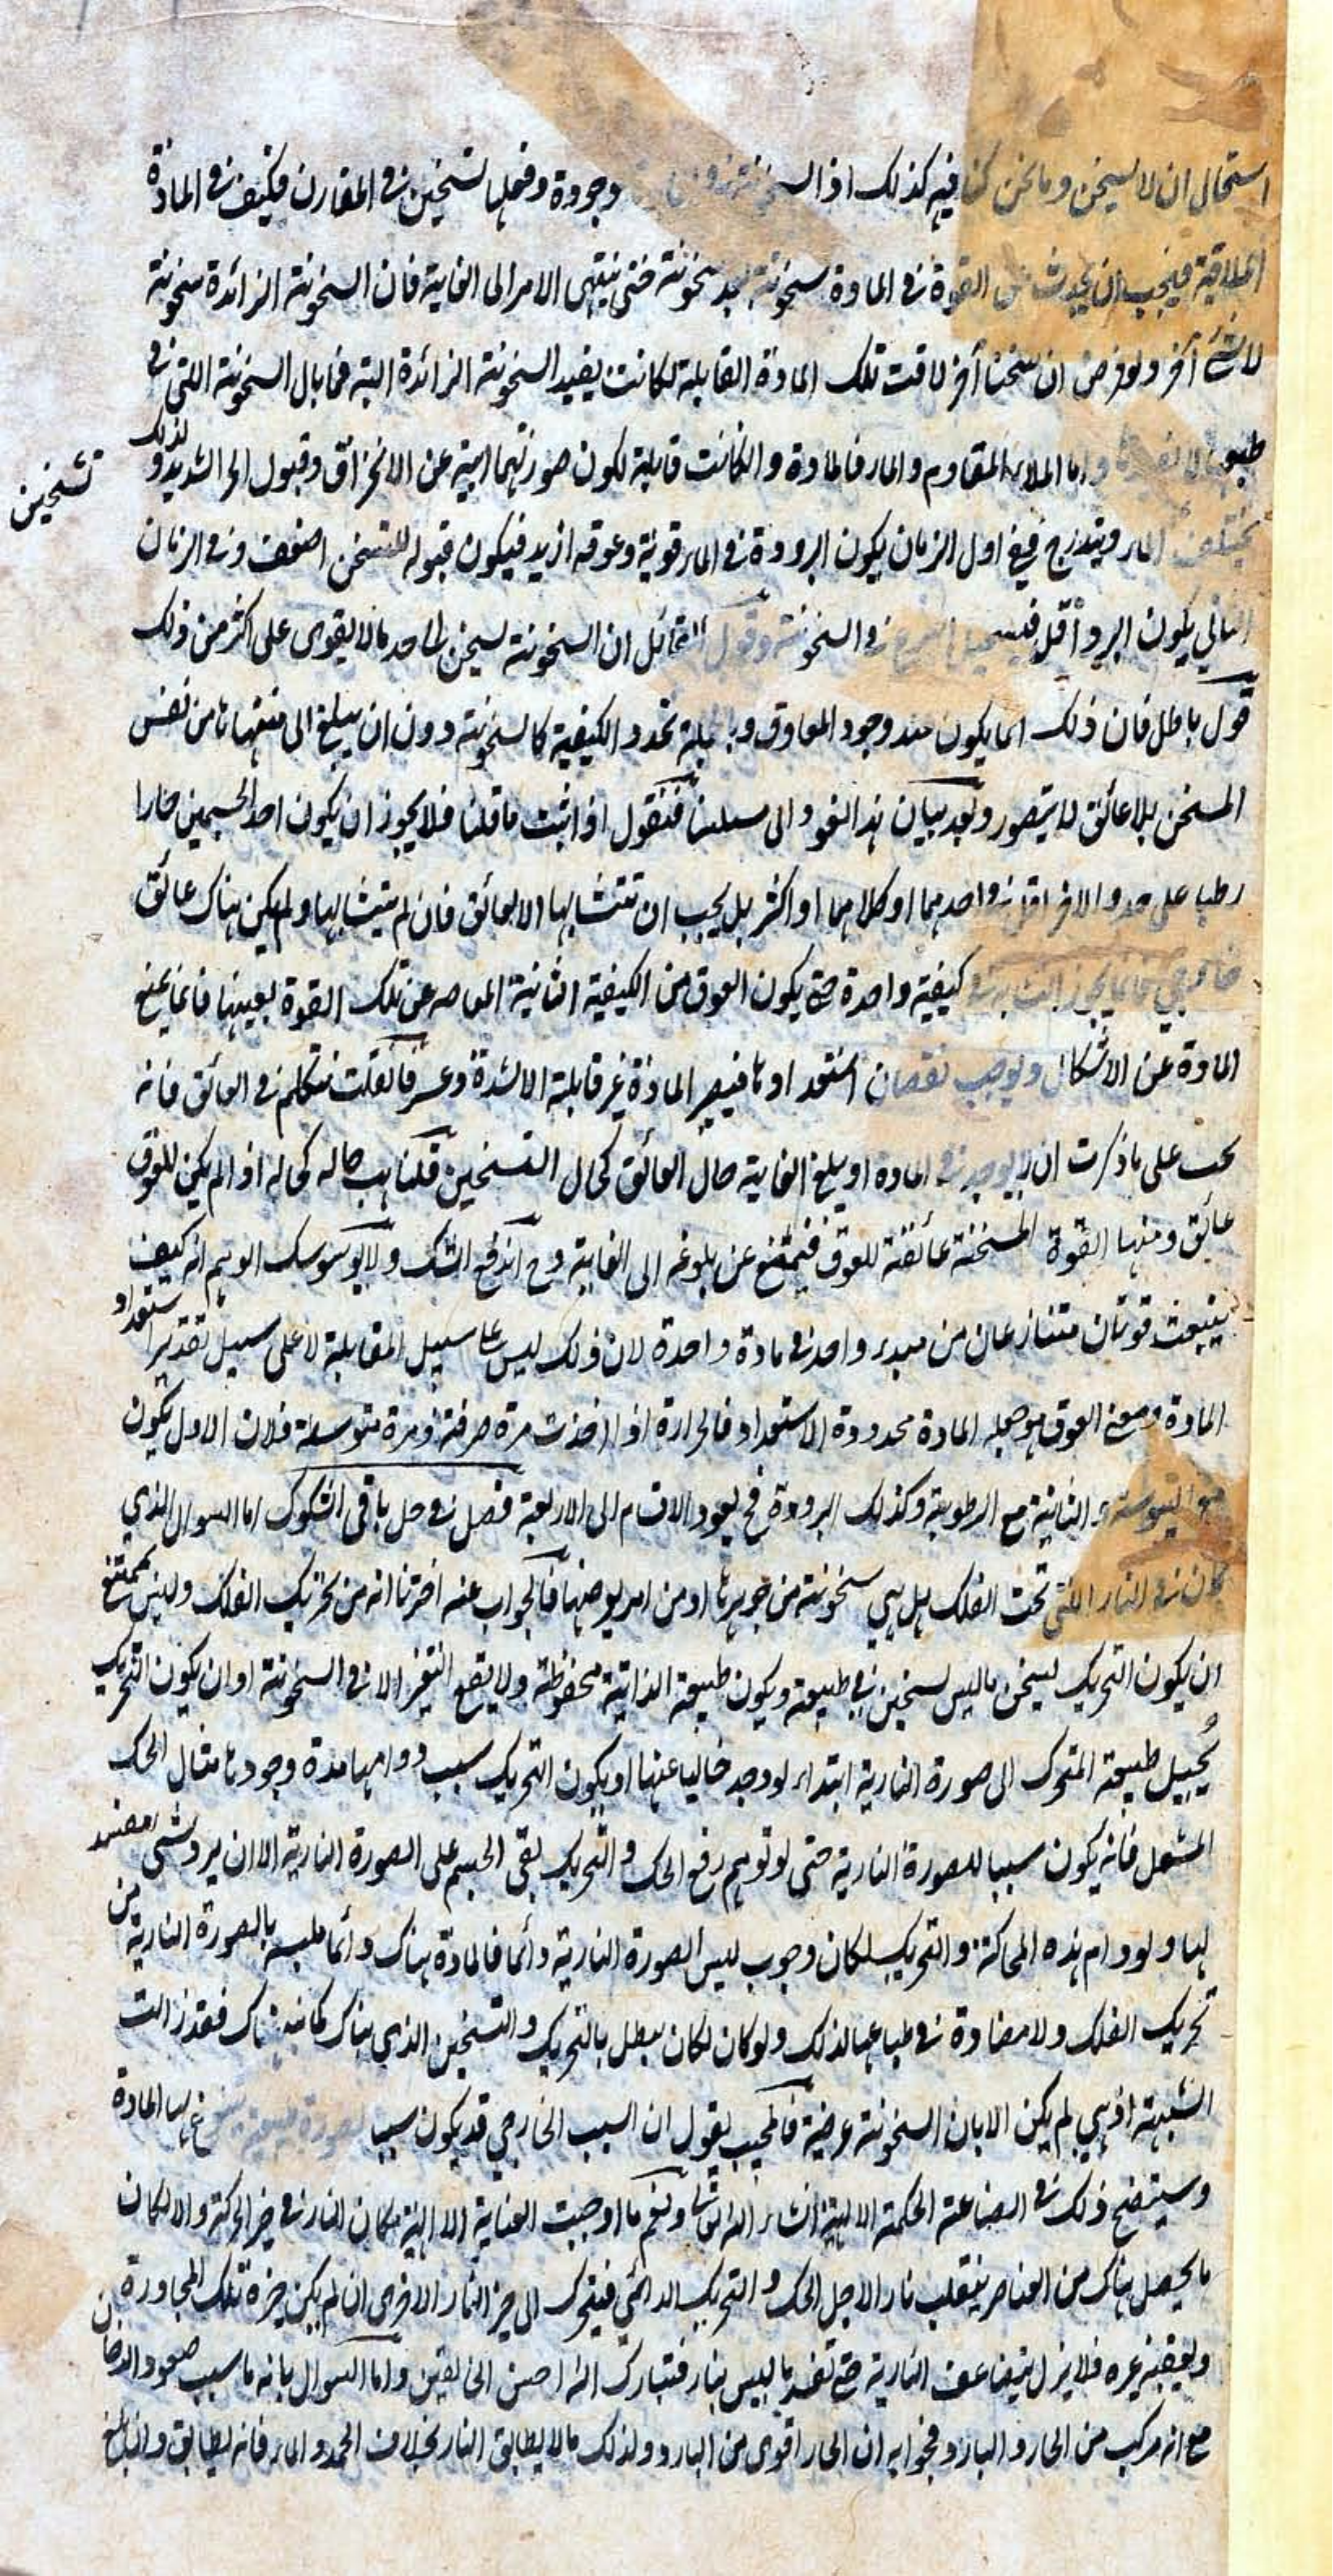 استحال ان لا يسخن وما نحن كنا فيه كذلك اذ السخونة وجودة وفعلها تسخين في المقارن فكيف في المادة
الملاقية فيجب ان يحدث عن القوة في المادة سخونة بعد سخونة حتى ينتهى الامر الى الغاية فان السخونة الزائدة سخونة
لا شئ آخر ولو فرض ان سخنا آخر لاقت تلك المادة القابلة لكانت يفيد السخونة الزائدة البتة فما بال السخونة اللتى في
طبيعتها لا واما الملاء المقاوم والماء فالمادة وان كانت قابلة لكون صورتهما ابية عن الانخراق وقبول الحر الشديد ولذلك
تسخين
يختلف الماء ويتدرج ففي اول الزمان يكون البرودة في الماء قوية وعوقه ازيد فيكون قبوله للتسخن اضعف وفي الزمان
الثاني يكون البرد اقل فيستحيل في السخونة وقول القائل ان السخونة يسخن الى حد ما لا يقوى على اكثر من ذلك
قول باطل فان ذلك انما يكون عند وجود المعاوق وبالجملة تحدد الكيفية كالسخونة دون ان يبلغ الى منتهاها من نفس
المسخن بلا عائق لا يتصور وبعد بيان هذا نعود الى مسئلتنا فنقول اذا ثبت ما قلنا فلا يجوز ان يكون احد الجسمين حارا
رطبا على حد والاخر اقل في احدهما او كلاهما او اكثر بل يجب ان تتشابها الا لعائق فان لم يتشابها ولم يكن هناك عائق
خارجي فانما يجوز التشابه في كيفية واحدة حتى يكون العوق من الكيفية الثانية عن تلك القوة بعينها فانما يمنع
المادة عن الاشكال ويوجب نقصان استعدادها فيصير المادة غير قابلة الا لشدة وعسر فان قلت نتكلم في العائق فانه
يجب على ما ذكرت ان يوجد في المادة او يبلغ الغاية حال العائق كحال التسخين قلنا هب حاله كحاله اذا لم يكن للعوق
عائق ومنها القوة المسخنة عائقة للعوق فيمتنع عن بلوغه الى الغاية وح اندفع الشك ولا يوسوسك الوهم انه كيف
ينبعث قوتان متنازعان من مبدء واحد في مادة واحدة لان ذلك ليس على سبيل المقابلة لا على سبيل تقدير استعداد
المادة ومعنى العوق هو جعله المادة محدودة الاستعداد فالحرارة اذا اخذت مرة صرفة ومرة متوسطة فلان الاول يكون
مع اليبوسة والثانية مع الرطوبة وكذلك البرودة فح يعود الاقسام الى الاربعة فصل في حل باقى الشكوك اما السوال الذي
كان في النار اللتى تحت الفلك هل هي سخونة من جوهرها او من امر يعرضها فالجواب عنه اخترنا انه من تحريك الفلك وليس بممتنع
ان يكون التحريك ليسخن ما ليس بسخين في طبيعته ويكون طبيعة الذاتية محفوظة ولا يقع التغير الا في السخونة او ان يكون التحريك
يُحيل طبيعة المتحرك الى صورة النارية ابتداء لو وجد خاليا عنها او يكون التحريك سبب دوامها مدة وجودها مثال الحك
المشعل فانه يكون سببا للصورة النارية حتى لو توهم رفع الحك والتحريك بقى الجسم على الصورة النارية الا ان يرد شئ مفسد
لها ولو دام هذه المحاكة والتحريك لكان وجوب لبس الصورة النارية دائما فالمادة هناك دائما ملبسة بالصورة النارية من
تحريك الفلك ولا مضادة في طباعها لذلك ولو كان لكان يبطل بالتحريك والتسخين الذي هناك فقد زالت
الشبهة اذ هي لم يكن الا بان السخونة عرضية فالمجيب يقول ان السبب الخارجي قد يكون سببا لصورة طبيعية لها المادة
وسيتضح ذلك في الصناعة الحكمة الالهية انشاء الله تعالى ونعم ما اوجبت العناية الالهية مكان النار في حيز الحركة والا لكان
ما يحصل هناك من العناصر ينقلب نارا لاجل الحك والتحريك الدائمي فيتحرك الى حيز النار الاخرى ان لم يكن حيزه تلك المجاورة
ويعقبه غيره فلا يزال يتضاعف النارية حتى تفسد ما ليس بنار فتبارك الله احسن الخالقين واما السوال بانه ما سبب صعود الدخان
مع انه مركب من الحار والبارد فجوابه ان الحار اقوى من البارد ولذلك ما لا يطابق النار بخلاف الجمد والماء فانه يطابق والبالغ